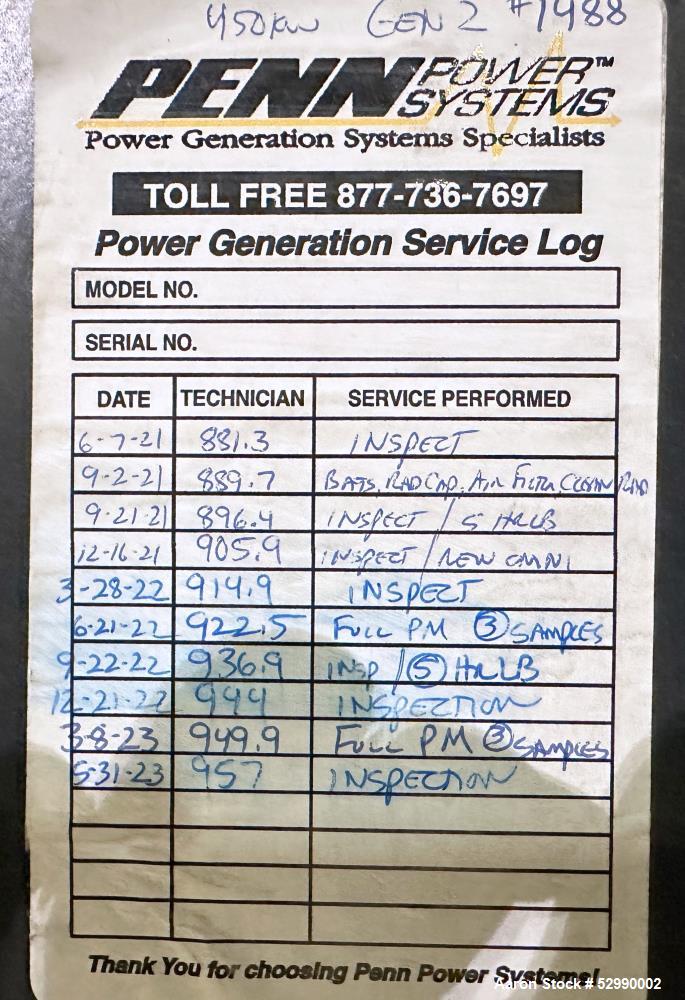 450kw GEN 2 #1488
PENN POWER™ SYSTEMS
Power Generation Systems Specialists
TOLL FREE 877-736-7697
Power Generation Service Log
MODEL NO.
SERIAL NO.
DATE TECHNICIAN SERVICE PERFORMED
6-7-21 881.3 INSPECT
9-2-21 889.7 BATS, RAD CAP, AIR FILTR, CLEAN RAD
9-21-21 896.4 INSPECT / 5 HR LB
12-16-21 905.9 INSPECT / NEW OMNI
3-28-22 914.9 INSPECT
6-21-22 922.5 FULL PM 3 SAMPLES
9-22-22 936.9 INSP / 5 HR LB
12-21-22 944 INSPECTION
3-8-23 949.9 FULL PM 3 SAMPLES
5-31-23 957 INSPECTION
Thank You for choosing Penn Power Systems!
Aaron Stock # 52990002